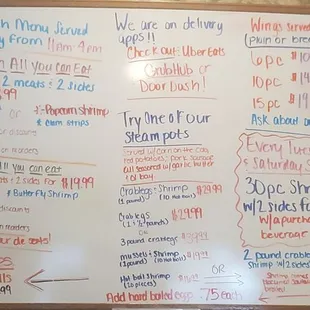 ch Menu Served
y from 11am-4pm
All You can Eat
2 meats + 2 sides
.99
or
Popcorn Shrimp
+ Clam Strips
discounts
readers
ll you can eat
+ 2 sides for $19.99
+ Butterfly Shrimp
discounts
on readers
r die seats!
lls
.99
We are on delivery
apps!!
Check out: Uber Eats
GrubHub or
DoorDash!
Try One of our
Steam pots
Served w/ corn on the cob,
red potatoes, Pork Sausage
all seasoned w/ garlic butter
+ old bay
Crab legs + Shrimp $29.99
(1 pound) (10 Hot Boil)
Crab legs $29.99
OR
3 pound crab legs
mussels + Shrimp
Hot boil Shrimp
OR
Add hard boiled egg .75 each
Wings serve
(plain or bre
6 pc
10 pc
15 pc
Ask about
Every Tues
+ Saturday
30 pc Shr
w/ 2 sides fo
w/ a purcha
beverage
2 pound crab leg
Shrimp w/ 2 sides